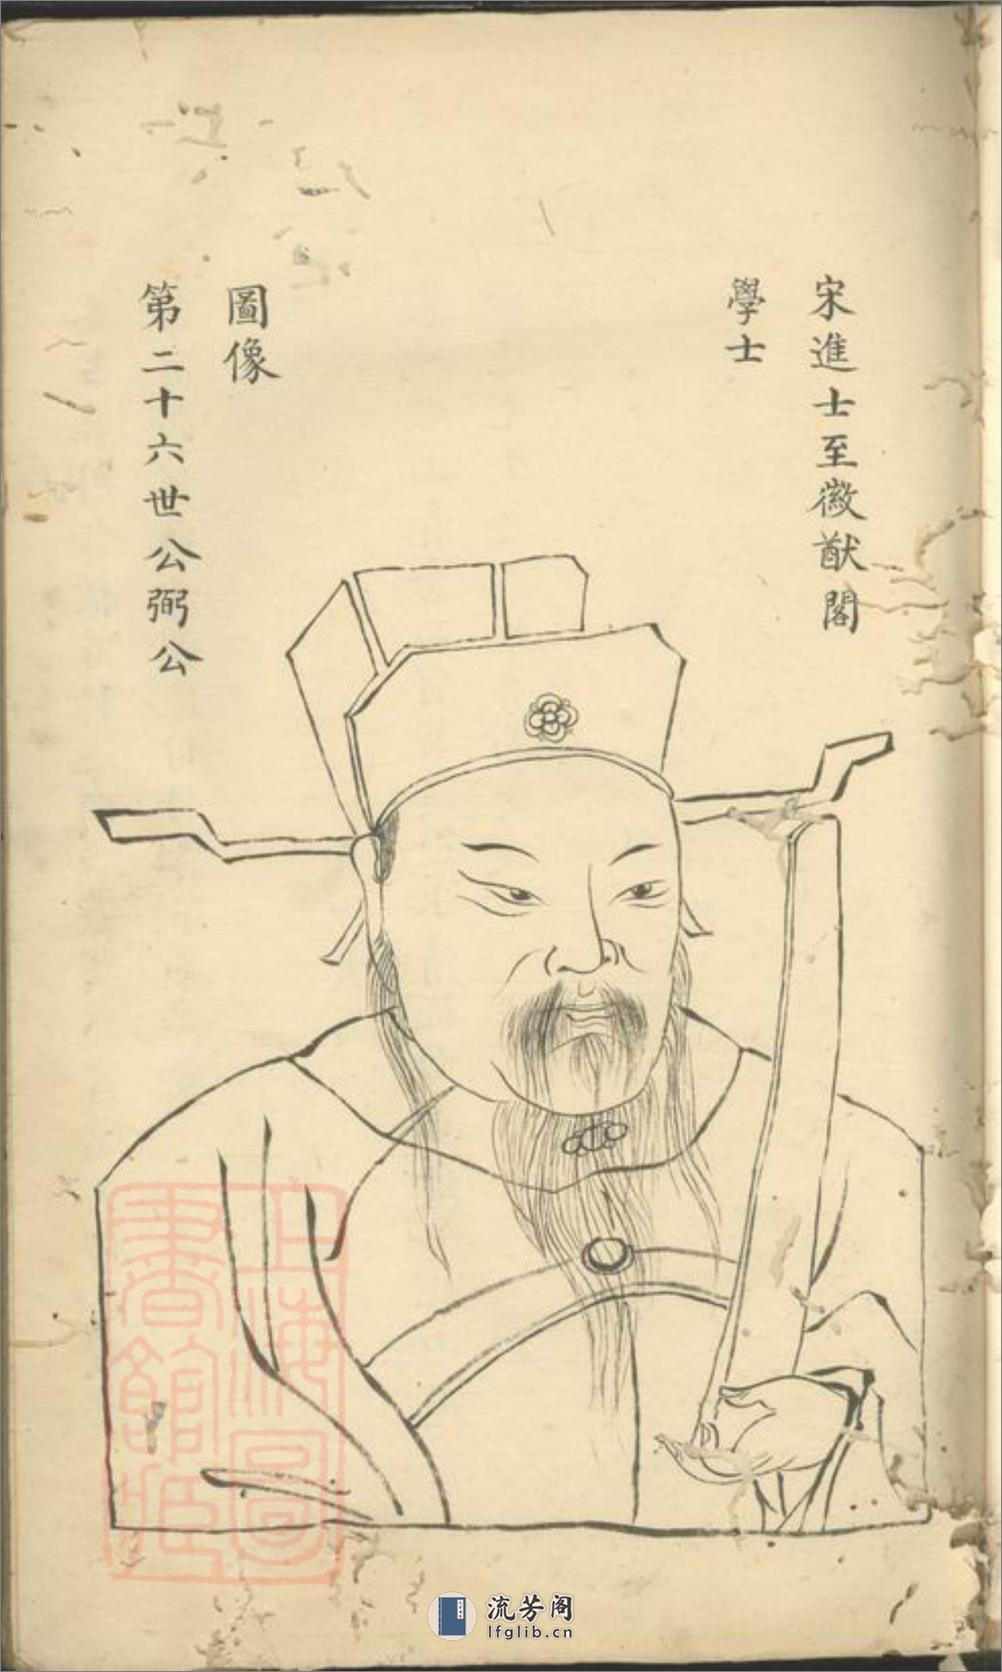 宋進士至徽猷閣
學士
圖像
第二十六世公弼公
上海圖書館藏
流芳阁
lfglib.cn